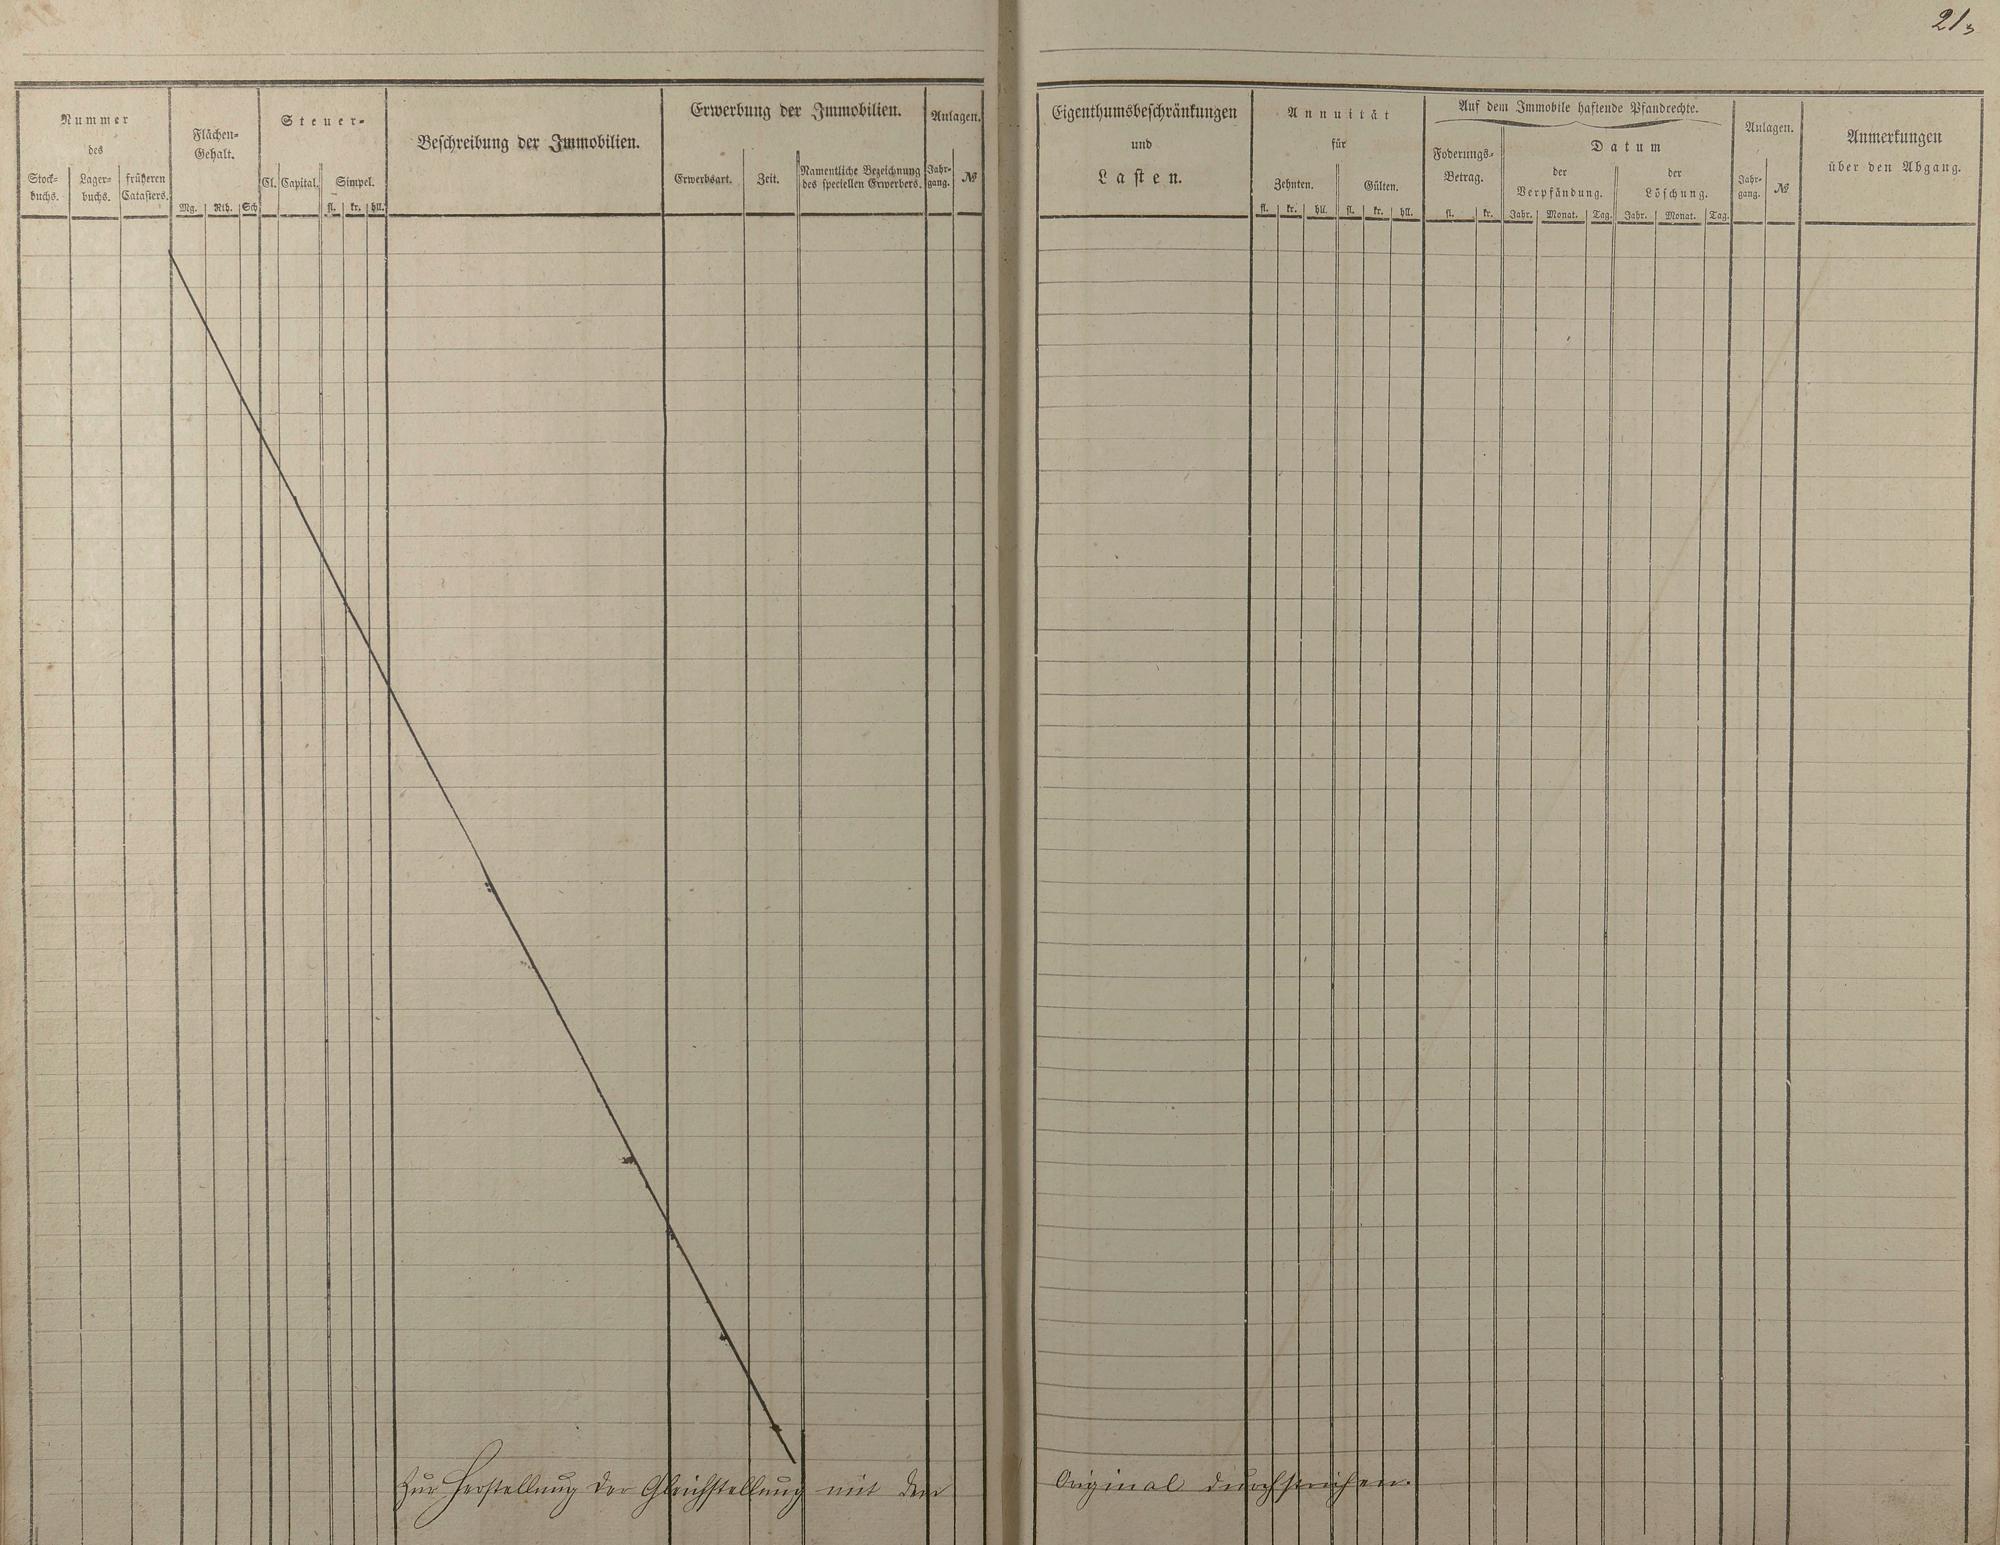 21
Nummer
des
Stock-
buchs.
Lager-
buchs.
früheren
Catasters.
Flächen-
Gehalt.
Mg.
Rth.
Sch.
Steuer-
Cl.
Capital.
Simpel.
fl.
kr.
hll.
Beschreibung der Immobilien.
Erwerbung der Immobilien.
Erwerbsart.
Zeit.
Namentliche Bezeichnung
des speciellen Erwerbers.
Anlagen.
Jahr-
gang.
№
Eigenthumsbeschränkungen
und
Lasten.
Annuität
für
Zehnten.
Gülten.
fl.
kr.
hll.
fl.
kr.
hll.
Auf dem Immobile haftende Pfandrechte.
Foderungs-
Betrag.
fl.
kr.
Datum
der
Verpfändung.
Jahr.
Monat.
Tag.
der
Löschung.
Jahr.
Monat.
Tag.
Anlagen.
Jahr-
gang.
№
Anmerkungen
über den Abgang.
Zur Herstellung der Gleichstellung mit dem Original durchstrichen.